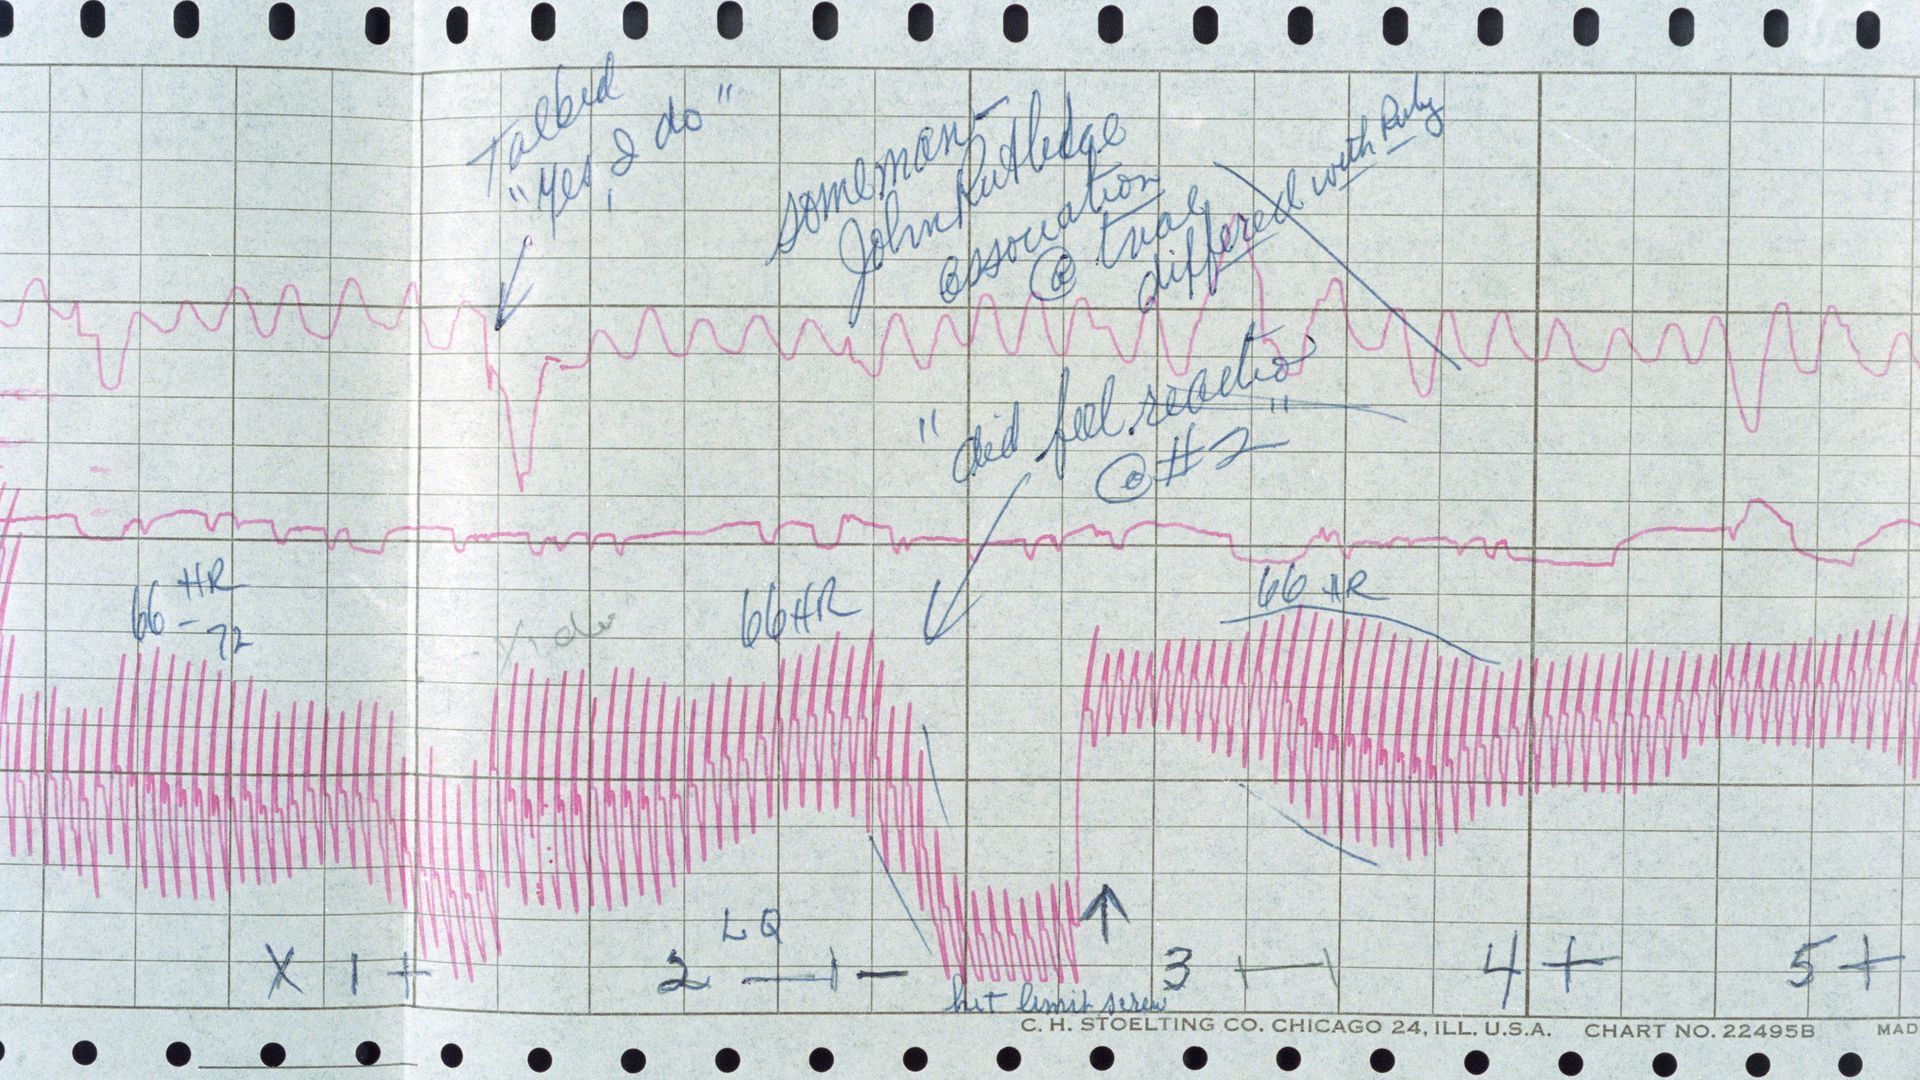 Talked
"Yes I do"
some man -
John Rutledge
association
@ trial
differed with Ruby
"did feel reactio"
@ #2
66 - HR
72
66 HR
66 HR
X 1 +
2 LQ —
3
4 +
5 +
hit limit screw
C. H. STOELTING CO. CHICAGO 24, ILL. U.S.A. CHART NO. 22495B MAD